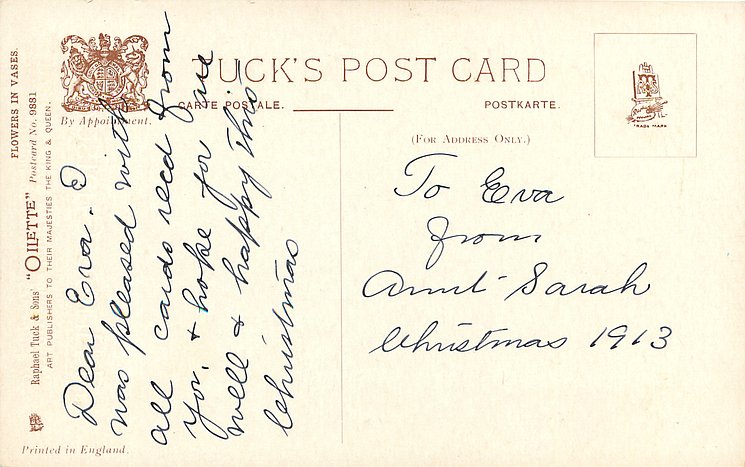 TUCK'S POST CARD
CARTE POSTALE.
POSTKARTE.
By Appointment.
(FOR ADDRESS ONLY.)
TRADE MARK
FLOWERS IN VASES.
Raphael Tuck & Sons' "OILETTE" Postcard No. 9881
ART PUBLISHERS TO THEIR MAJESTIES THE KING & QUEEN.
Printed in England.
Dear Eva. I
was pleased with
all cards recd from
you, & hope for
well & happy this
Christmas
To Eva
from
Aunt Sarah
Christmas 1913